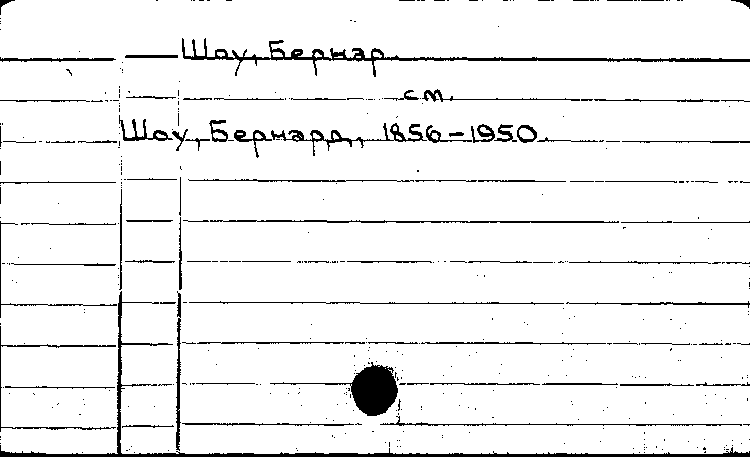 Шоу, Бернар
см.
Шоу, Бернард, 1856-1950.